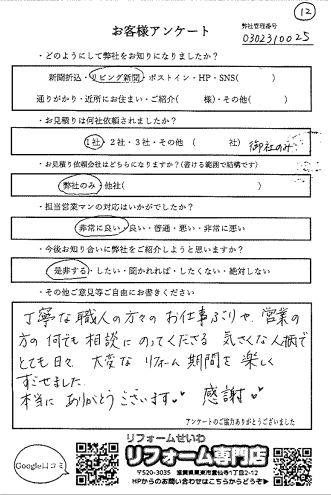 ⑫
お客様アンケート
弊社管理番号
0302310025
・どのようにして弊社をお知りになりましたか？
新聞折込・リビング新聞・ポストイン・HP・SNS( )
通りがかり・近所にお住まい・ご紹介( 様)・その他( )
・お見積りは何社依頼されましたか？
1社・2社・3社・その他 ( 社) 御社のみ
・お見積り依頼会社はどちらになりますか？(書ける範囲で結構です)
弊社のみ・他社( )
・担当営業マンの対応はいかがでしたか？
非常に良い・良い・普通・悪い・非常に悪い
・今後お知り合いに弊社をご紹介しようと思いますか？
是非する・したい・聞かれれば・したくない・絶対しない
・その他ご意見等ご自由にお書きください
丁寧な職人の方々のお仕事ぶりや、営業の
方の何でも相談にのってくださる 気さくな人柄で
とても日々、大変なリフォーム期間を楽しく
すごせました。
本当にありがとうございます 感謝
アンケートのご協力ありがとうございました
Google口コミ
リフォームせいわ
リフォーム専門店
〒520-3035 滋賀県栗東市霊仙寺1丁目2-12
HPからのお問い合わせはこちらからどうぞ